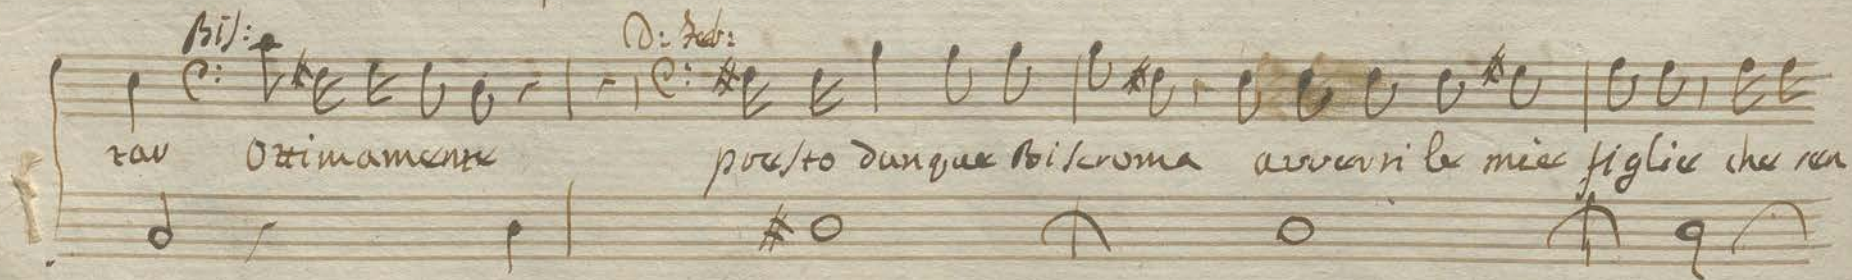 Bis: D: Feb:
rar Ottimamente presto dunque Biscroma avverti le mie figlie che sen